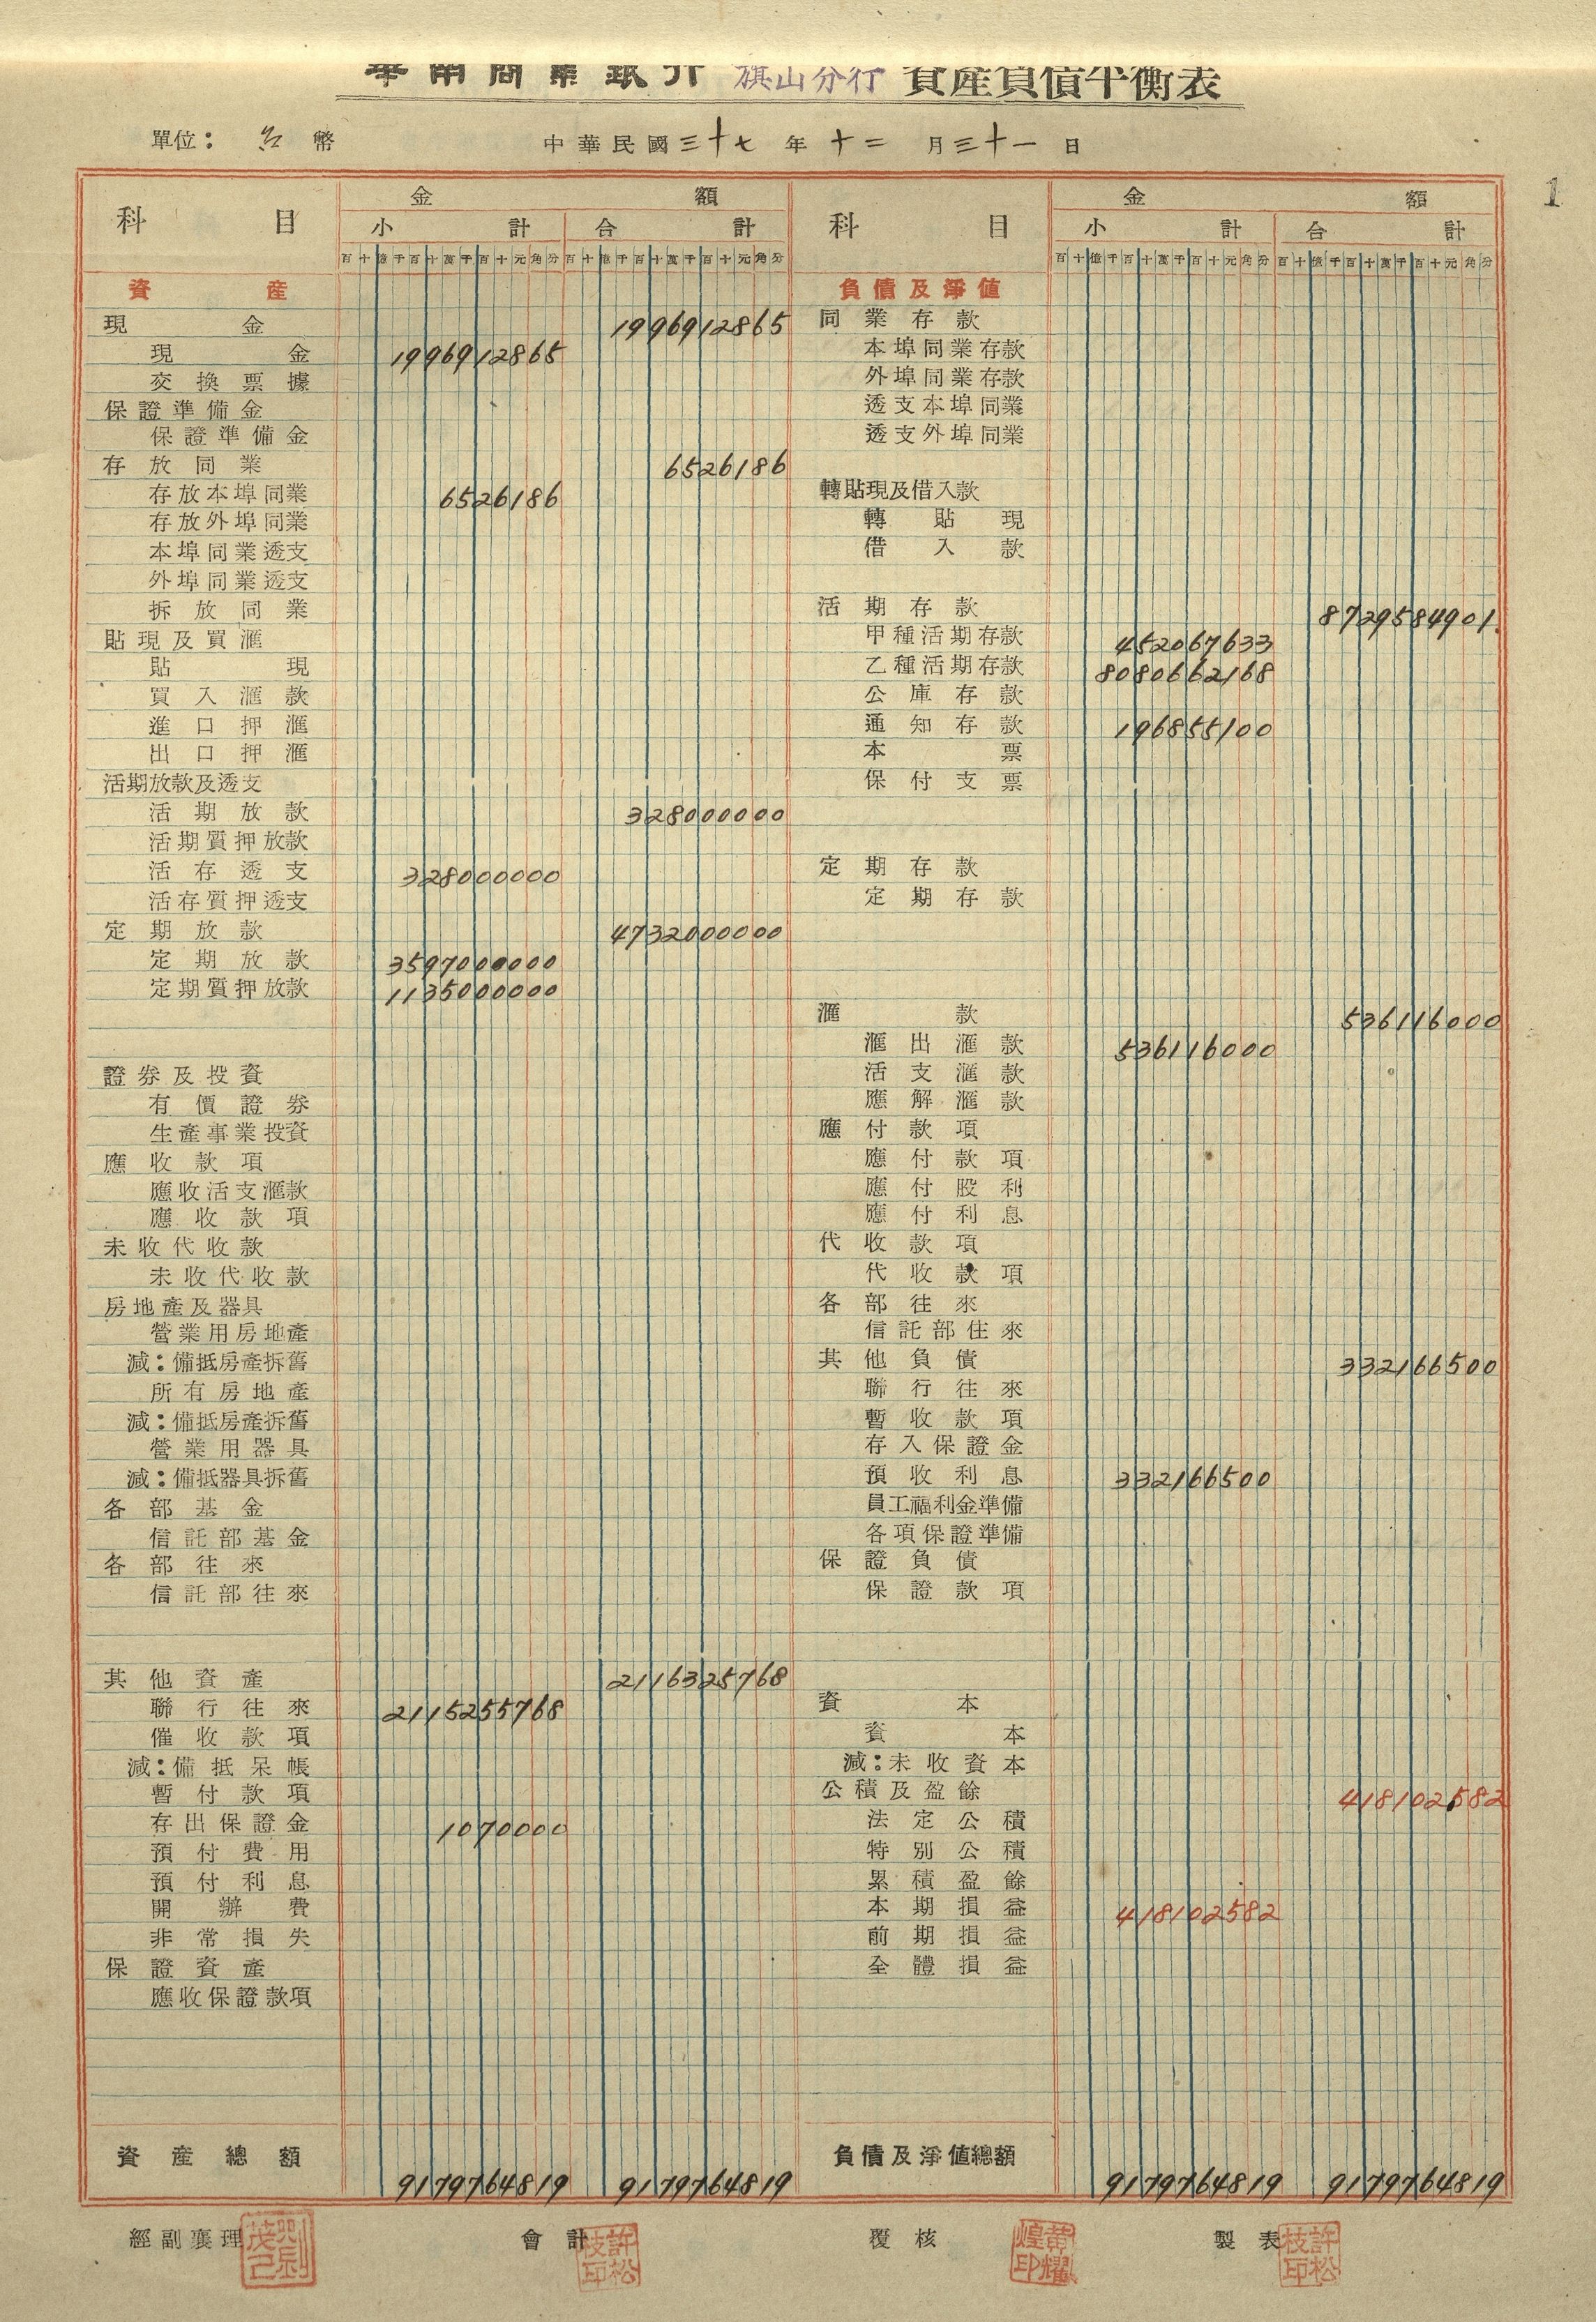 華南商業銀行 旗山分行 資產負債平衡表
單位：台幣 中華民國三十七年十二月三十一日
1
科目 金額 科目 金額
小計 合計 小計 合計
百十億千百十萬千百十元角分 百十億千百十萬千百十元角分 百十億千百十萬千百十元角分 百十億千百十萬千百十元角分
資產
現金 1996912865
現金 1996912865
交換票據
保證準備金
保證準備金
存放同業 6526186
存放本埠同業 6526186
存放外埠同業
本埠同業透支
外埠同業透支
拆放同業
貼現及買滙
貼現
買入滙款
進口押滙
出口押滙
活期放款及透支
活期放款 328000000
活期質押放款
活存透支 328000000
活存質押透支
定期放款 4732000000
定期放款 3597000000
定期質押放款 1135000000
證券及投資
有價證券
生產事業投資
應收款項
應收活支滙款
應收款項
未收代收款
未收代收款
房地產及器具
營業用房地產
減：備抵房產拆舊
所有房地產
減：備抵房產拆舊
營業用器具
減：備抵器具拆舊
各部基金
信託部基金
各部往來
信託部往來
其他資產 2116325768
聯行往來 2115255768
催收款項
減：備抵呆帳
暫付款項
存出保證金 1070000
預付費用
預付利息
開辦費
非常損失
保證資產
應收保證款項
資產總額 9179764819 9179764819
負債及淨值
同業存款
本埠同業存款
外埠同業存款
透支本埠同業
透支外埠同業
轉貼現及借入款
轉貼現
借入款
活期存款 8729584901
甲種活期存款 452067633
乙種活期存款 8080662168
公庫存款
通知存款 196855100
本票
保付支票
定期存款
定期存款
滙款 536116000
滙出滙款 536116000
活支滙款
應解滙款
應付款項
應付款項
應付股利
應付利息
代收款項
代收款項
各部往來
信託部往來
其他負債 332166500
聯行往來
暫收款項
存入保證金
預收利息 332166500
員工福利金準備
各項保證準備
保證負債
保證款項
資本
資本
減：未收資本
公積及盈餘 418102582
法定公積
特別公積
累積盈餘
本期損益 418102582
前期損益
全體損益
負債及淨值總額 9179764819 9179764819
經副襄理 會計 許松枝印 覆核 黃耀煌印 製表 許松枝印